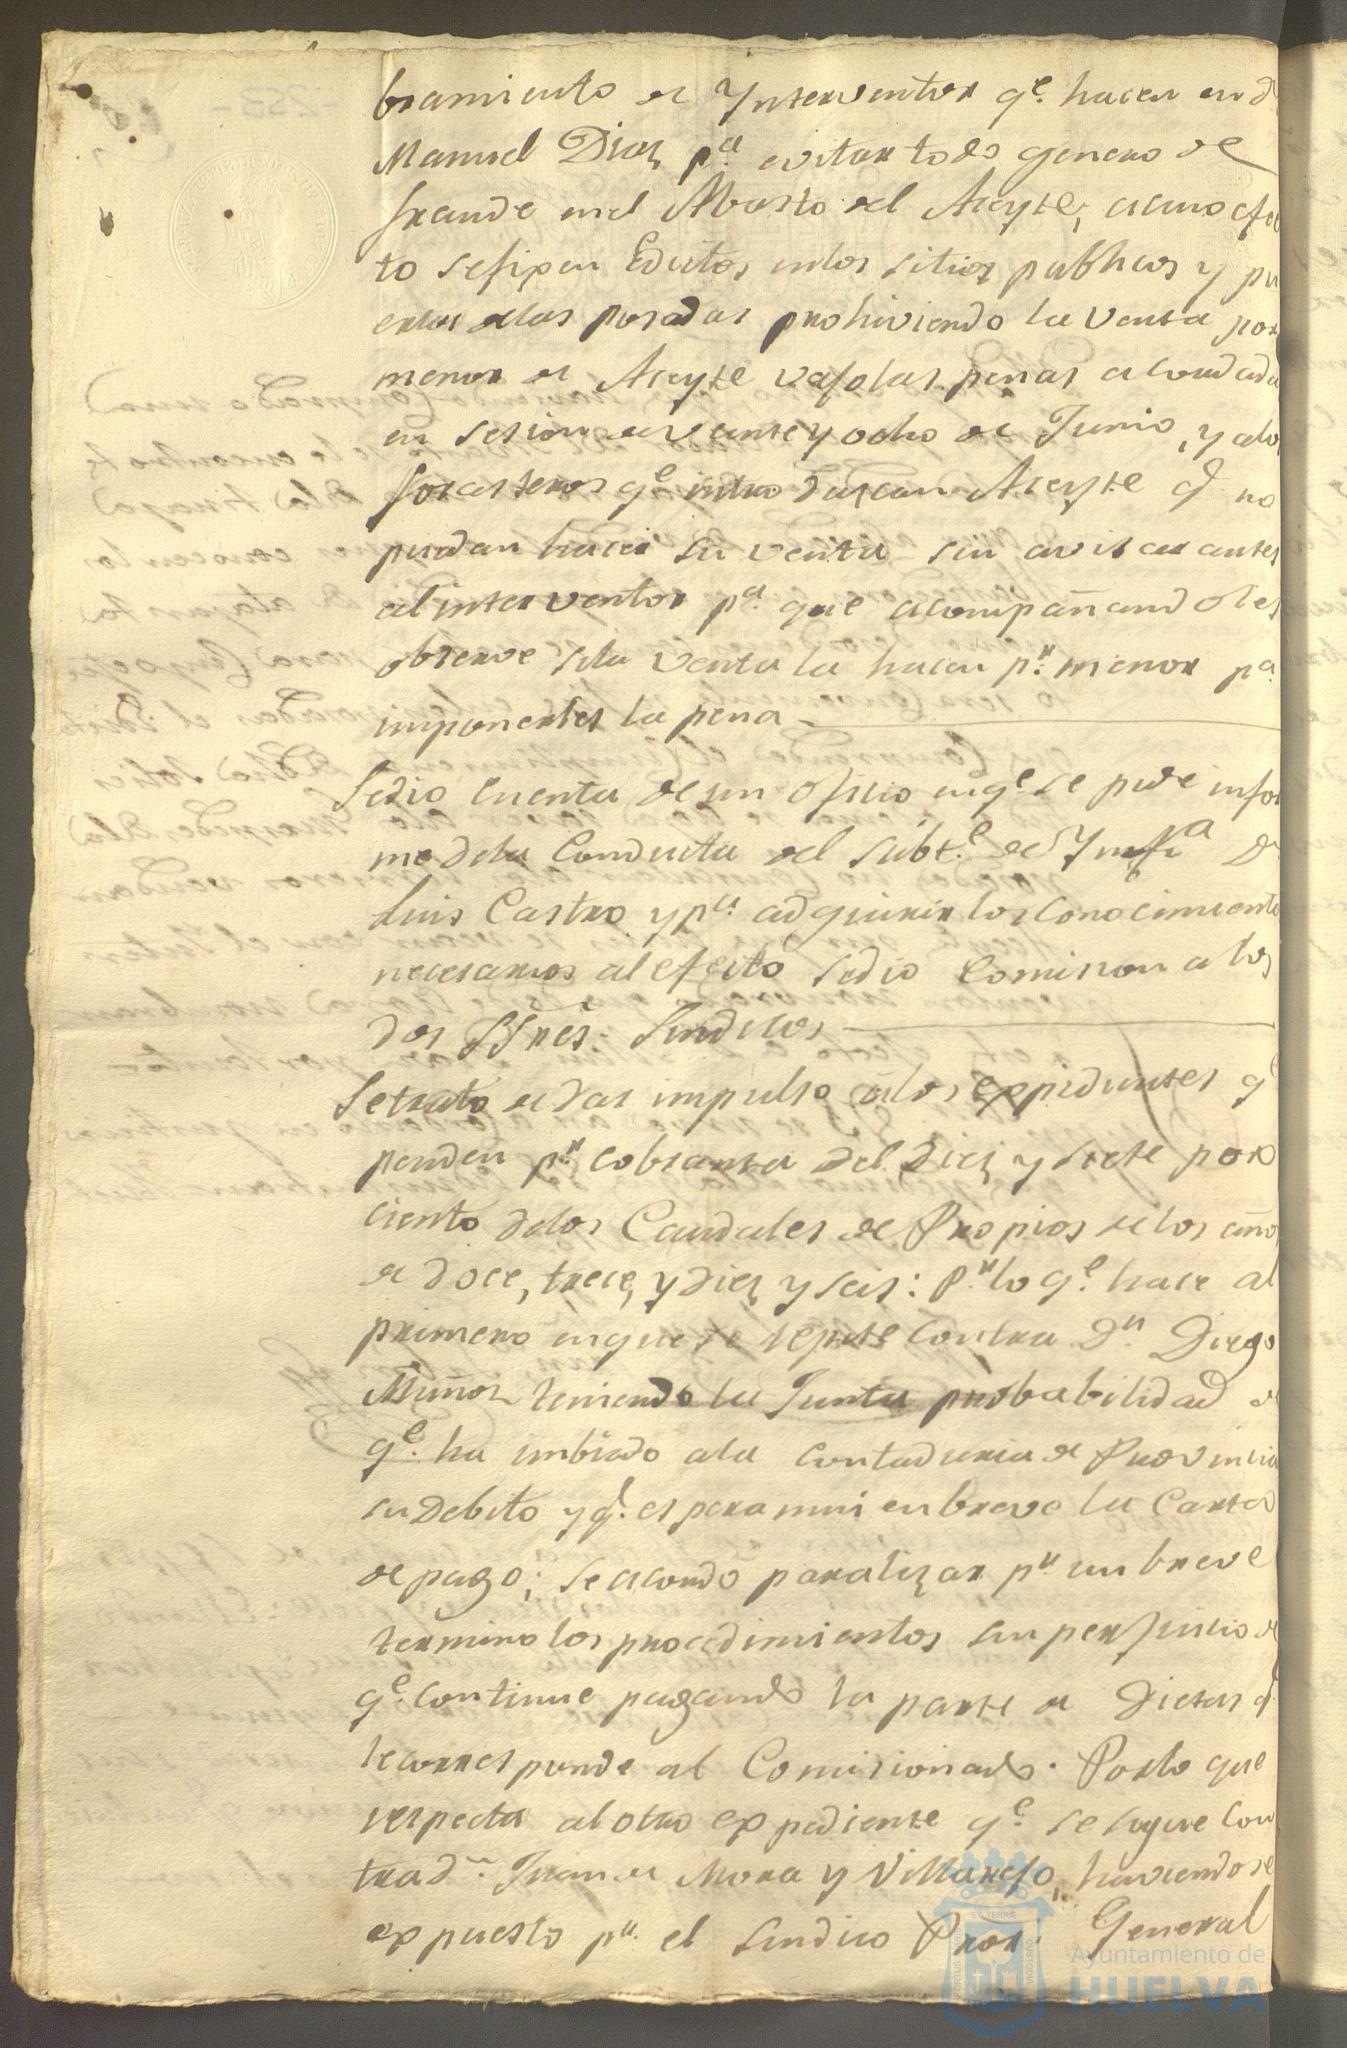 bramiento de Ynterventor qe. hacen en dn
Manuel Diaz pa. evitar todo genero de
fraude en el Abasto del Aceyte, a cuio efec
to se fixen Edictos en los sitios publicos y pu
ertas de las posadas prohiviendo la venta por
menor de Aceyte vajo las penas acordadas
en sesion de veinte y ocho de Junio, y a los
forasteros qe introduzcan Aceyte q. no
puedan hacer su venta sin avisar antes
al interventor pa. que acompañandoles
observe si la venta la hacen pr. menor pa.
imponerles la pena
Se dio cuenta de un oficio en qe. se pide infor
me de la Conducta del Subte. de Ynfa Dn
Luis Castro y pa. adquirir los conocimientos
necesarios al efecto se dio comision a los
dos SSres. Sindicos
Se trato de dar impulso a los expedientes qe
penden pr. cobranza del Diez y siete por
ciento de los Caudales de Propios de los años
de doce, trece, y diez y seis: Pr. lo qe. hace al
primero en que se repite contra Dn. Diego
Muñoz teniendo la Junta probabilidad de
qe. ha imbiado a la Contaduria de Provincia
su Debito y q. espera mui en breve la Carta
de pago; se acordo paralizar pr un breve
termino los procedimientos sin perjuicio de
qe. continue pagando la parte de Dietas q.
le corresponde al Comisionado. Por lo que
respecta al otro expediente qe. se sigue con
tra dn. Juan de Mora y Villarejo, haviendose
expuesto pr. el Sindico Pror. General
Ayuntamiento de
HUELVA